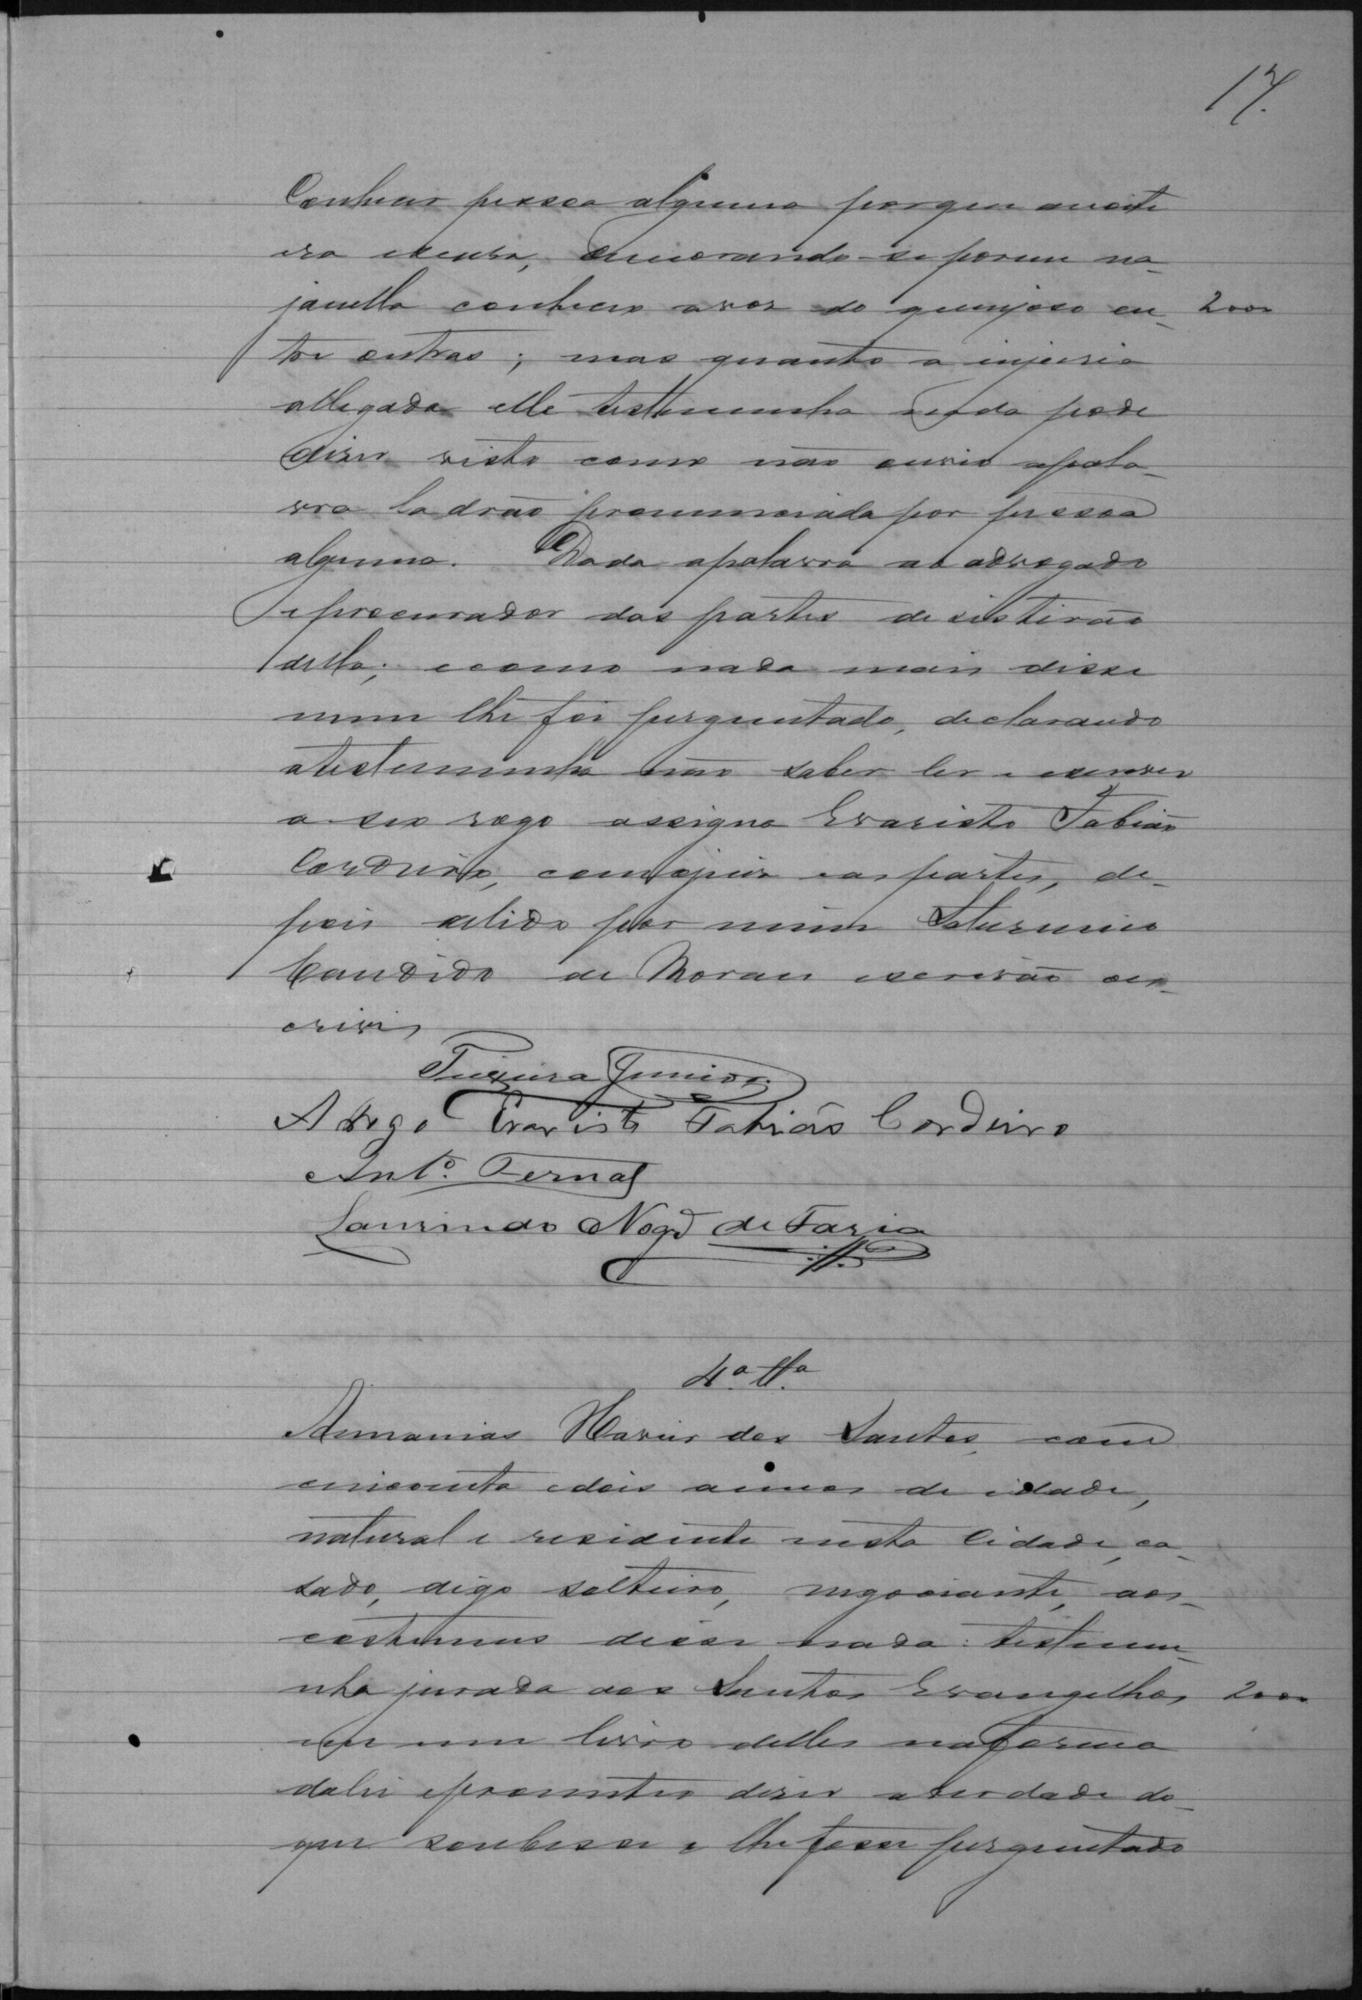 17.
Conhecer pessoa alguma porque a noite
era escura, demorando-se porem na
janella conheceu a voz do queixoso en- 2000
tre outras; mas quanto a injuria
allegada elle testimunha nada pode
diser visto como não ouvio apala-
vra ladrão pronunciada por pessoa
alguma. Dada apalavra ao advogado
e procurador das partes desistirão
della; ecomo nada mais disse
nem lhe foi perguntado, declarando
atestemunha não saber ler e escrever
a seo rogo assigna Evaristo Fabião
Cordeiro, com ojuiz eas partes, de-
pois delido por mim Saturnino
Candido de Moraes escrivão oes-
crivi,
Teixeira Junior.
A rogo Evaristo Fabião Cordeiro
Antº. Fernal
Laurindo Nogª de Faria
4ª. Ttª.
Annanias Xavier dos Santos, com
cincoenta edois annos de idade,
natural e residente nesta Cidade, ca-
sado, digo solteiro, negociante, aos
costumes disse nada: testemu-
nha jurada aos Santos Evangelhos 2000
em um livro delles na forma
dalei eprometeo diser averdade do
que soubesse e lhe fosse perguntado